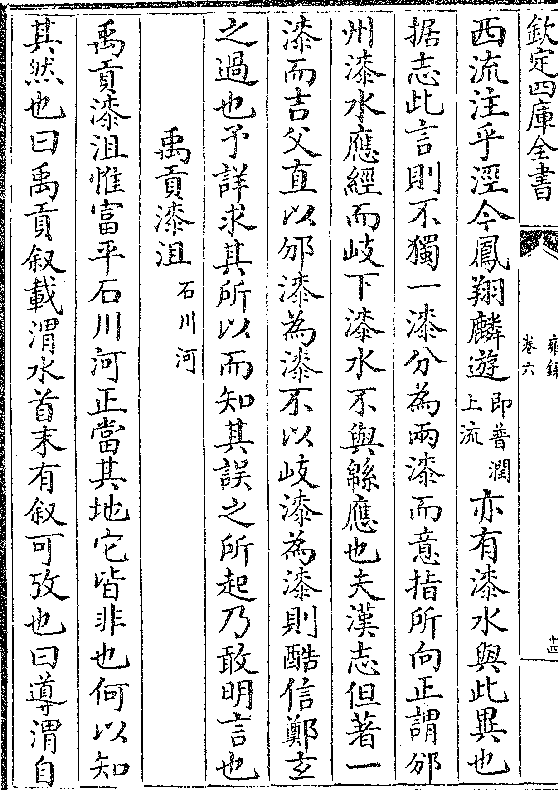 欽定四庫全書
雍録
卷六
十四
西流注乎涇今鳳翔麟遊即普潤上流亦有漆水與此異也
据志此言則不獨一漆分為兩漆而意指所向正謂邠
州漆水應經而岐下漆水不與緜應也夫漢志但著一
漆而吉父直以邠漆為漆不以岐漆為漆則酷信鄭玄
之過也予詳求其所以而知其誤之所起乃敢明言也
禹貢漆沮石川河
禹貢漆沮惟富平石川河正當其地它皆非也何以知
其然也曰禹貢叙載渭水首末有叙可攷也曰導渭自